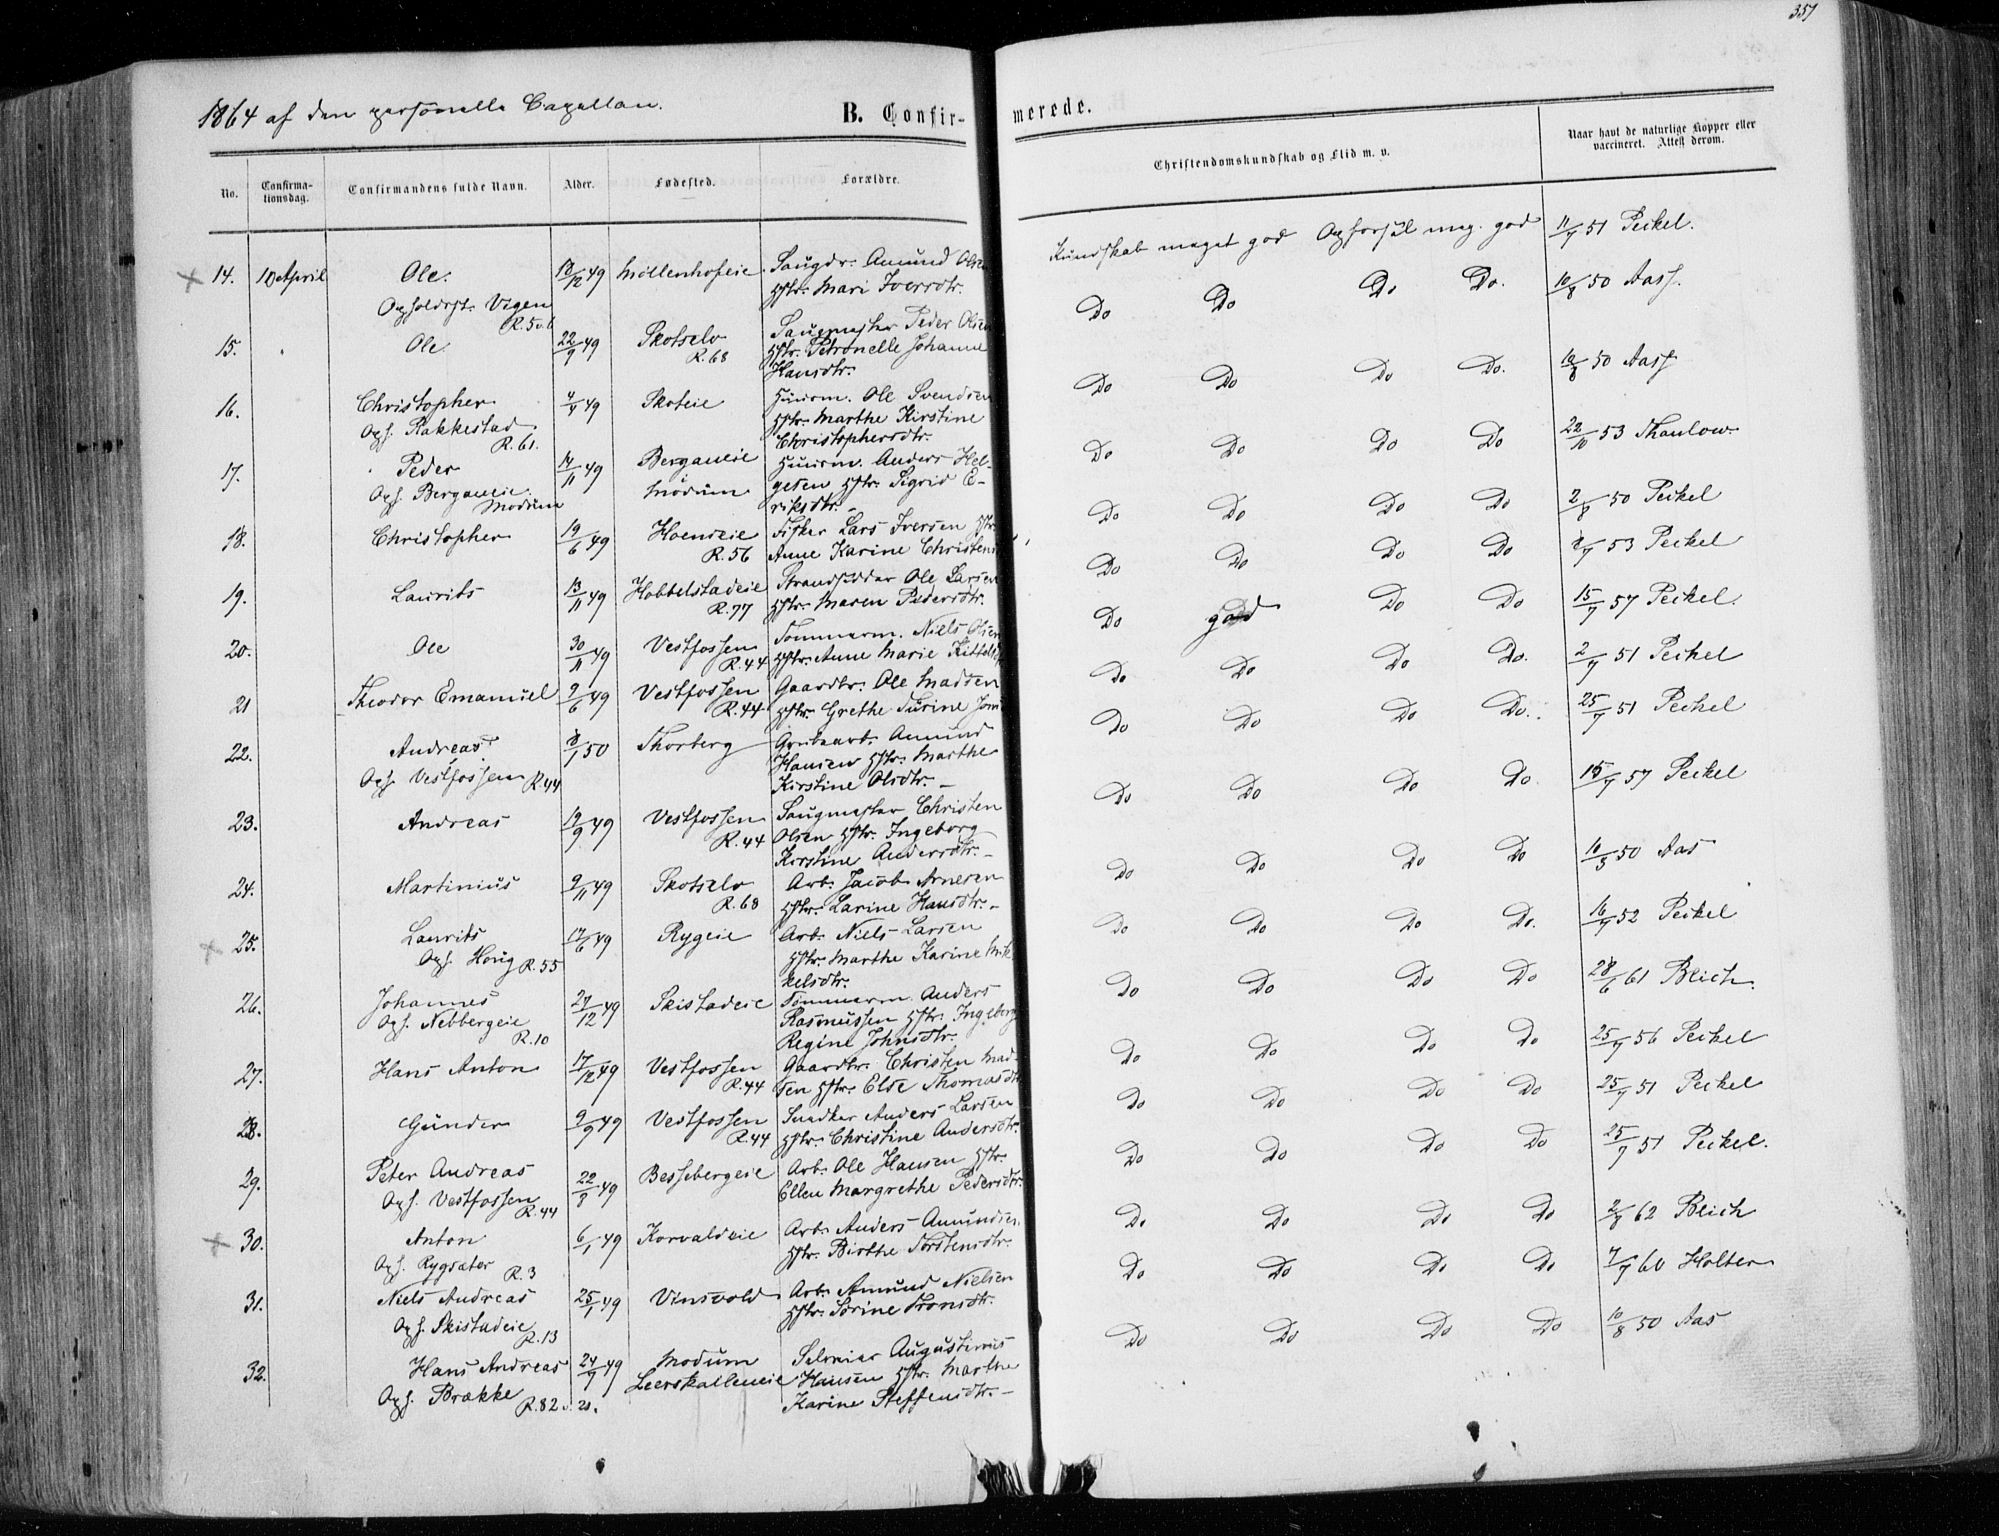 351
1864 af den personelle Capellan.
B. Confirmerede.
No.
Confirmationsdag.
Confirmandens fulde Navn.
Alder.
Fødested.
Forældre.
Christendomskundskab og Flid m. v.
Naar havt de naturlige Kopper eller vaccineret. Attest derom.
14. 10 April Ole. 18/12 49 Möllenhofeie Saugdr. Amund Olsen
Opholdsst. Vegen Hstr. Mari Iversdtr.
Kundskab meget god Opførsel meg. god 11/7 51 Peckel.
R. 5
15. Ole 22/9 49 Skotselv Saugmester Peder Olsen
R. 68 Hstr. Petronelle Johanne
Hansdtr.
Do Do Do Do. 10/8 50 Aass.
16. Christopher 4/4 49 Skoteie Huusm. Ole Svendsen
Oph. Rakkestad Hstr. Marthe Kirstine
R. 61. Christophersdtr.
Do Do Do Do. 10/8 50 Aass
17. Peder 14/11 49 Berganeie Huusm. Anders Hel-
Oph. Berganeie Modum gesen Hstr. Sigrid E-
Modum riksdtr.
Do Do Do Do 22/11 53 Thaulow
18. Christopher 19/6 49 Hoenseie Fisker Lars Iversen Hstr.
R. 56 Anne Karine Christens
Do Do Do Do 2/8 50 Peckel
19. Laurits 13/11 49 Hobbelstadeie Strandsidder Ole Larsen
R. 77 Hstr. Maren Pedersdtr.
Do Do Do Do /7 53 Peckel
20. Ole 30/11 49 Vestfossen Tømmerm. Niels Olsen
R. 44 Hstr. Anne Marie Kittels
Do god Do Do 15/7 57 Peckel.
21 Theodor Emanuel 9/6 49 Vestfossen Gaardbr. Ole Madsen
R. 44 Hstr. Grethe Turine
Do Do Do Do. 2/7 51 Peckel
22. Andreas 8/1 50 Thorberg Grubearb. Amund
Oph. Vestfossen R. 44 Hansen Hstr. Marthe
Kirstine Olsdtr. —
Do Do Do Do. 25/7 51 Peckel
23. Andreas 19/9 49 Vestfossen Saugmester Christen
R. 44 Olsen Hstr. Ingeborg
Kirstine Andersdtr. —
Do Do Do Do. 15/7 57 Peckel
24. Martinius 9/11 49 Skotselv Arb. Jacob Arnesen
R. 68 Hstr. Larine Hansdtr. —
Do Do Do Do 10/5 50 Aas
25. Laurits 17/6 49 Rygeie Arb. Niels Larsen
Oph. Houg R. 55 Hstr. Marthe Karine Mik
kelsdtr.
Do Do Do Do. 16/7 52 Peckel
26. Johannes 27/12 49 Skistadeie Tømmerm. Anders
Oph. Nebbergeie Rasmussen Hstr. Ingeborg
R. 10 Regine Johnsdtr.
Do Do Do Do 28/6 61 Blich.
27. Hans Anton 17/12 49 Vestfossen Gaardbr. Christen Mad-
R. 44 sen Hstr. Else Thomasdtr.
Do Do Do Do 25/7 56 Peckel
28. Gunder 9/9 49 Vestfossen Snedker Anders Larsen
R. 44 Hstr. Christine Andersdtr.
Do Do Do Do 25/7 51 Peckel
29. Peter Andreas 22/8 49 Bessebergeie Arb. Ole Hansen Hstr.
Oph. Vestfossen Ellen Margrethe Pedersdtr.
R. 44
Do Do Do Do 25/7 51 Peckel.
30. Anton 6/1 49 Korvaldeie Arb. Anders Amundsen
Oph. Rygsæter Hstr. Birthe Torstensdtr.
R. 3
Do Do Do Do 2/8 62 Blich
31. Niels Andreas 25/1 49 Vinsvold Arb. Amund Nielsen
Oph. Skistadeie Hstr. Sørine Tronsdtr.
R. 13
Do Do Do Do 7/7 60 Holter
32. Hans Andreas 24/7 49 Modum Augustinus
Oph. Brække Leerskalleneie Hansen Hstr. Marthe
R. 82 Karine Steffensdtr. —
Do Do Do Do 10/8 50 Aas